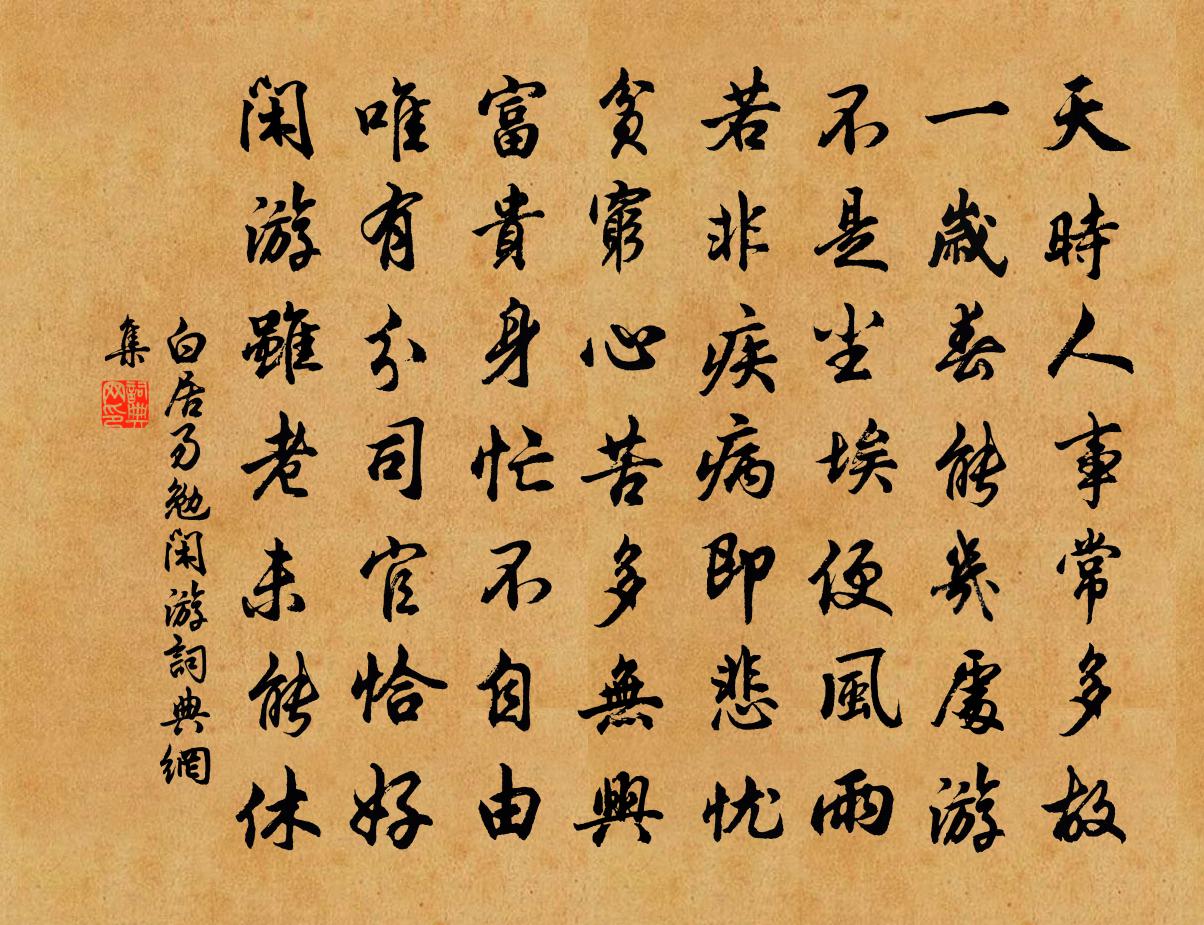 天時人事常多故
一歲春能幾處游
不是尘埃便風雨
若非疾病即悲忧
貧窮心苦多無興
富貴身忙不自由
唯有分司官恰好
闲游雖老未能休
白居易勉闲游詞典網
集
詞典网印